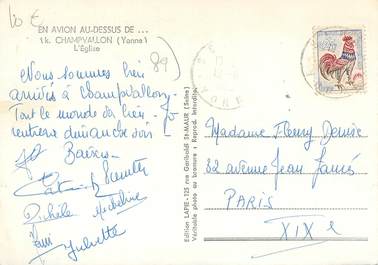 10 €
EN AVION AU-DESSUS DE ...
1k. CHAMPVALLON (Yonne)
L'Eglise
(89)
Nous sommes bien
arrivés à Champvallon.
Tout le monde va bien.
rentrerons dimanche soir
Baisers
Michèle Micheline
Juliette
Edition LAPIE - 125 rue Garibaldi St-MAUR (Seine)
Véritable photo au bromure - Reprod. Interdite
Madame Fleury Denise
82 avenue Jean Jaurès
PARIS
XIX e